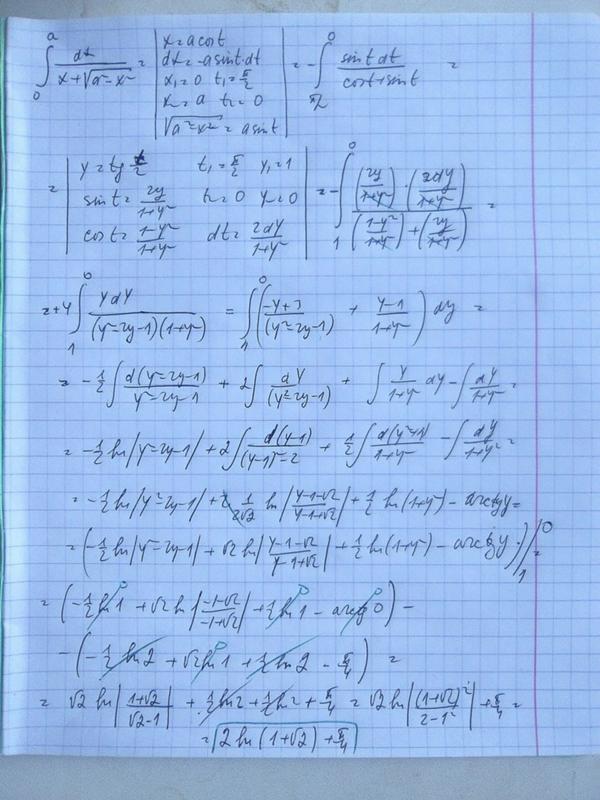 ∫₀ᵃ dx/(x+√(a²-x²)) = | x=a cost | = -∫_{π/2}^0 (sint dt)/(cost+sint) =
dx=-a sint·dt
x₁=0 t₁=π/2
x₂=a t₂=0
√(a²-x²)=a sint
= | y=tg t/2 t₁=π/2 y₁=1 | = -∫₁⁰ ((2y/(1+y²))·(2dy/(1+y²)))/((1-y²)/(1+y²)+(2y/(1+y²))) =
sint=2y/(1+y²) t₂=0 y=0
cost=(1-y²)/(1+y²) dt=2dy/(1+y²)
=+4∫₁⁰ ydy/((y²-2y-1)(1+y²)) = ∫₁⁰((-y+3)/(y²-2y-1) + (y-1)/(1+y²))dy =
= -1/2∫d(y²-2y-1)/(y²-2y-1) + 2∫dy/(y²-2y-1) + ∫y/(1+y²) dy - ∫dy/(1+y²) =
= -1/2 ln|y²-2y-1| + 2∫d(y-1)/((y-1)²-2) + 1/2∫d(y²+1)/(1+y²) - ∫dy/(1+y²) =
= -1/2 ln|y²-2y-1| + 2 1/(2√2) ln|(y-1-√2)/(y-1+√2)| + 1/2 ln(1+y²) - arctgy =
= (-1/2 ln|y²-2y-1| + √2 ln|(y-1-√2)/(y-1+√2)| + 1/2 ln(1+y²) - arctgy)|₁⁰ =
= (-1/2 ln1 + √2 ln|(-1-√2)/(-1+√2)| + 1/2 ln1 - arctg0) -
-(-1/2 ln2 + √2 ln1 + 1/2 ln2 - π/4) =
= √2 ln|(1+√2)/(√2-1)| + 1/2 ln2 + 1/2 ln2 + π/4 = √2 ln|(1+√2)²/(2-1²)| + π/4 =
= 2 ln(1+√2) + π/4